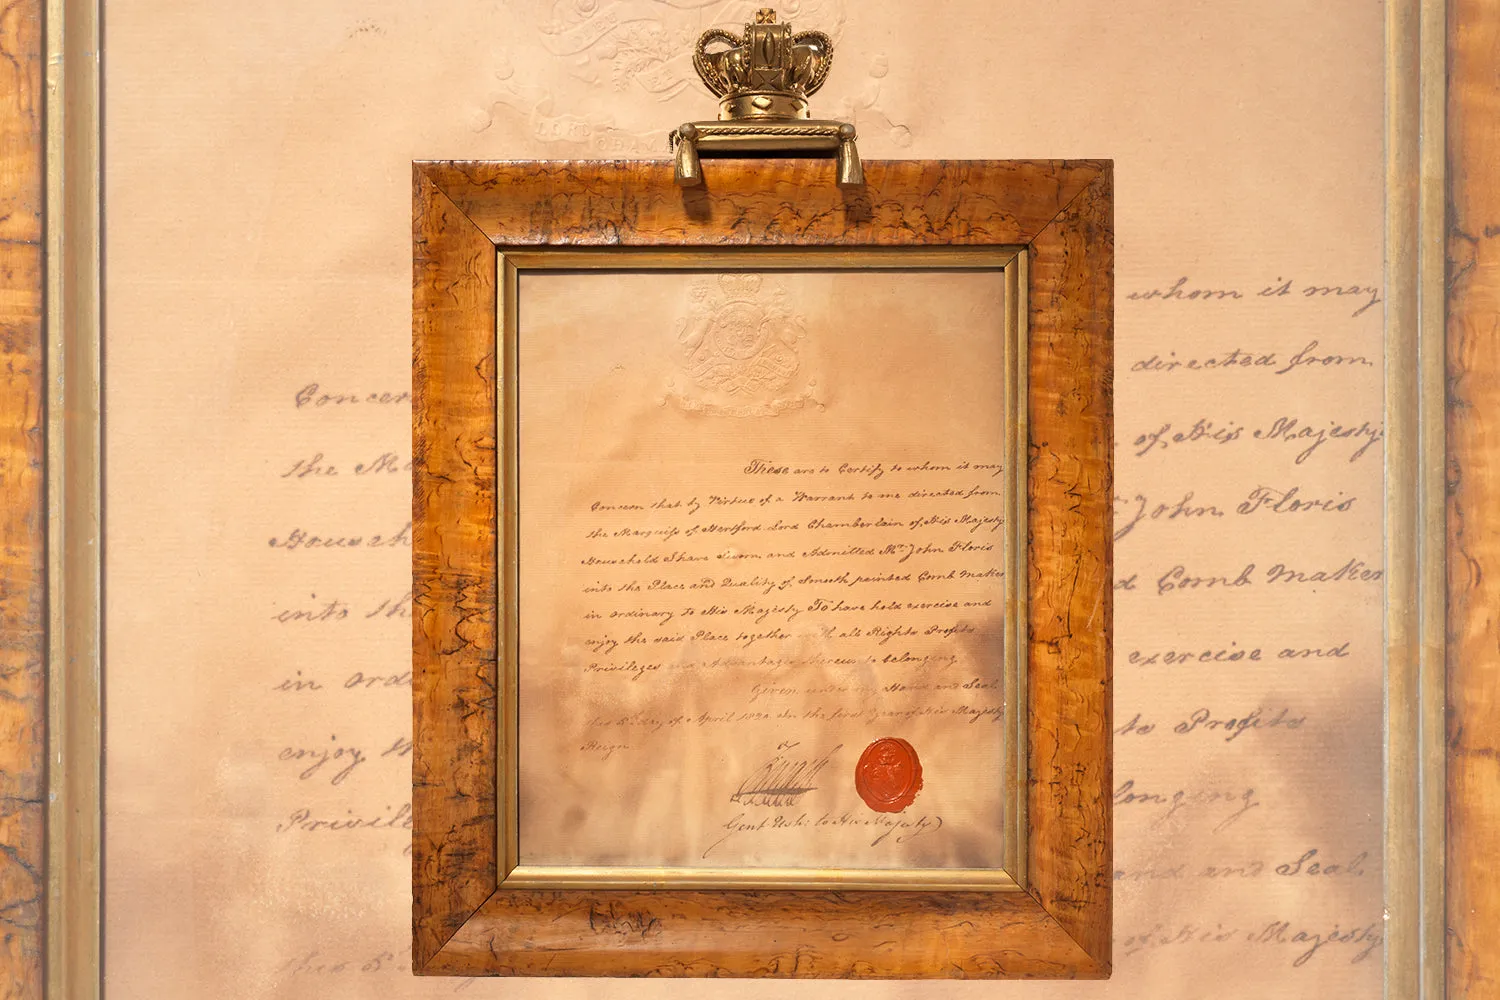 LORD CHAM
These are to Certify to whom it may
Concern that by Virtue of a Warrant to me directed from
the Marquiss of Hertford Lord Chamberlain of His Majesty
Household I have sworn and Admitted Mr. John Floris
into the Place and Quality of Smooth pointed Comb Maker
in ordinary to His Majesty To have hold exercise and
enjoy the said Place together with all Rights Profits
Privileges and Advantages thereunto belonging
Given under my Hand and Seal
this 5th day of April 1820 In the first Year of His Majesty
Reign
Gent Ush: to His Majesty
whom it may
directed from
Concer
of His Majesty
the Ma
John Floris
Househ
Comb Maker
into th
exercise and
in ord
to Profits
enjoy th
longing
Privile
and and Seal
of His Majesty
this 5